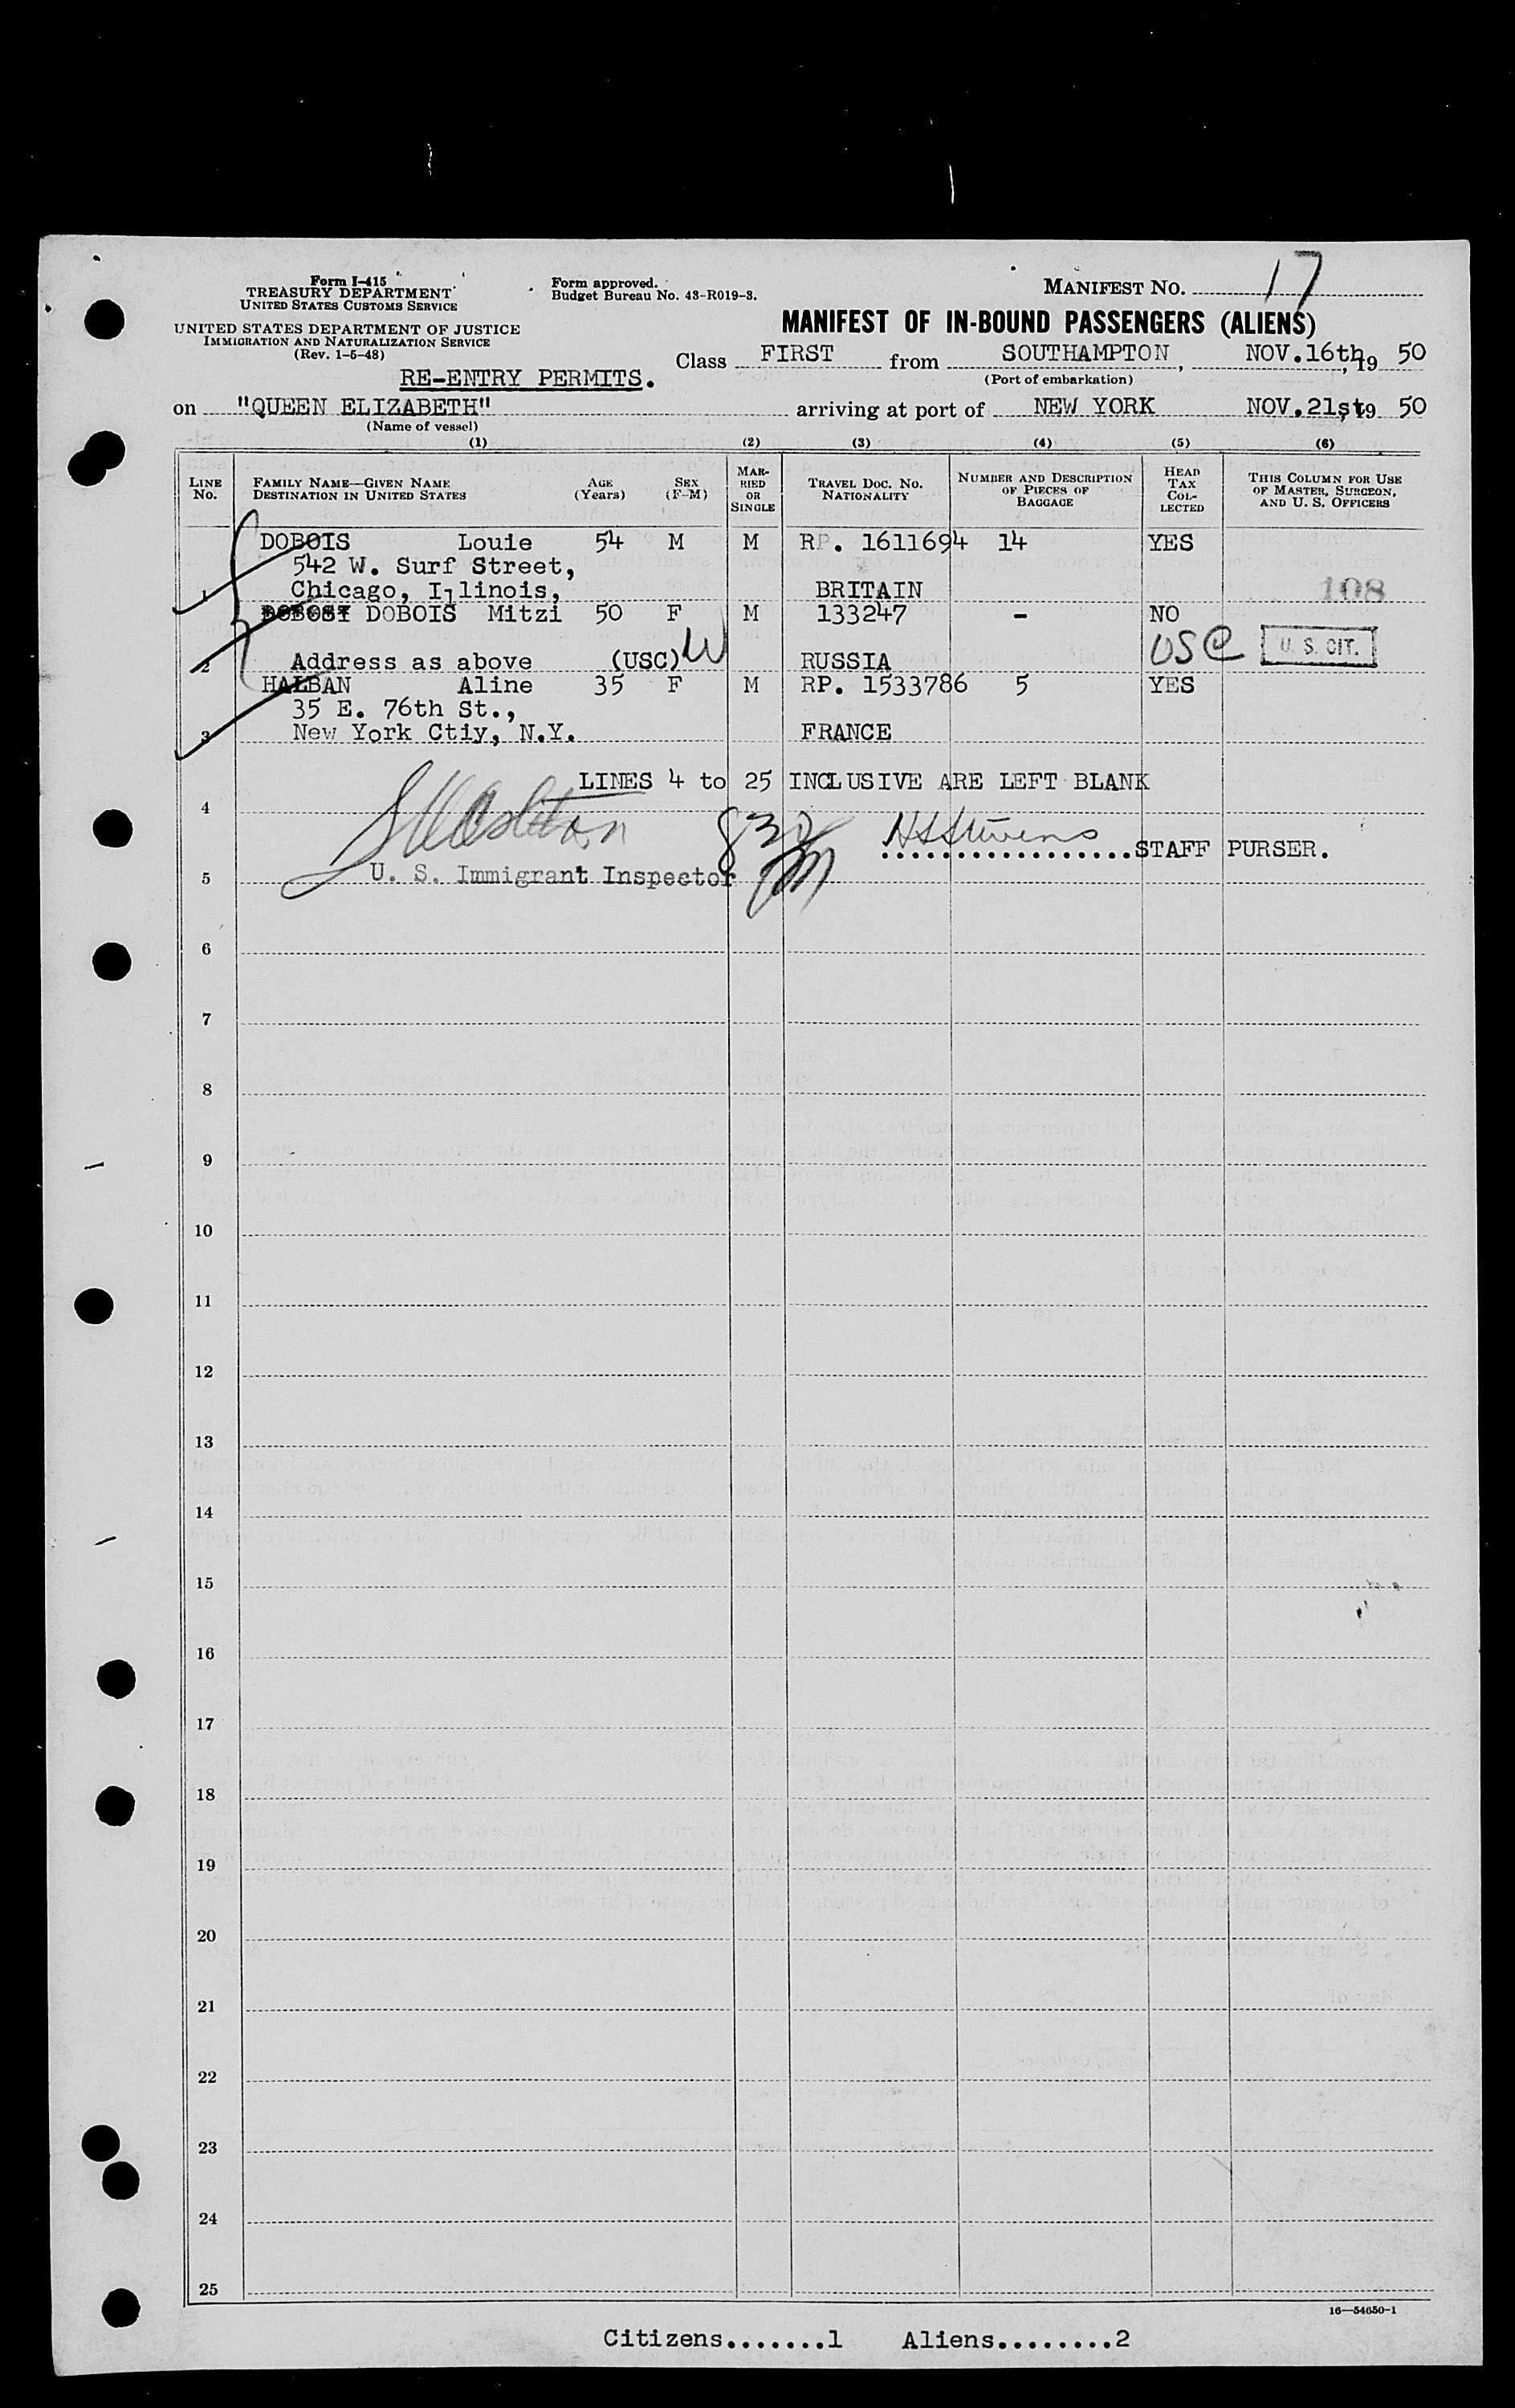 Form I-415
TREASURY DEPARTMENT
UNITED STATES CUSTOMS SERVICE
Form approved.
Budget Bureau No. 43-R019-3.
MANIFEST NO. 17
UNITED STATES DEPARTMENT OF JUSTICE
IMMIGRATION AND NATURALIZATION SERVICE
(Rev. 1-5-48)
MANIFEST OF IN-BOUND PASSENGERS (ALIENS)
Class FIRST from SOUTHAMPTON, NOV.16th, 19 50
(Port of embarkation)
RE-ENTRY PERMITS.
on "QUEEN ELIZABETH" arriving at port of NEW YORK NOV.21st, 19 50
(Name of vessel)
(1) (2) (3) (4) (5) (6)
LINE No. FAMILY NAME—GIVEN NAME DESTINATION IN UNITED STATES AGE (Years) SEX (F-M) MARRIED OR SINGLE TRAVEL DOC. NO. NATIONALITY NUMBER AND DESCRIPTION OF PIECES OF BAGGAGE HEAD TAX COLLECTED THIS COLUMN FOR USE OF MASTER, SURGEON, AND U. S. OFFICERS
DOBOIS Louie 54 M M RP. 1611694 14 YES
542 W. Surf Street,
1 Chicago, Illinois, BRITAIN 108
DOBOSI DOBOIS Mitzi 50 F M 133247 - NO
2 Address as above (USC) W RUSSIA USC U. S. CIT.
HALBAN Aline 35 F M RP. 1533786 5 YES
35 E. 76th St.,
3 New York Ctiy, N.Y. FRANCE
LINES 4 to 25 INCLUSIVE ARE LEFT BLANK
4
830 STAFF PURSER.
5 U. S. Immigrant Inspector
6
7
8
9
10
11
12
13
14
15
16
17
18
19
20
21
22
23
24
25
16—54650-1
Citizens.......1 Aliens........2